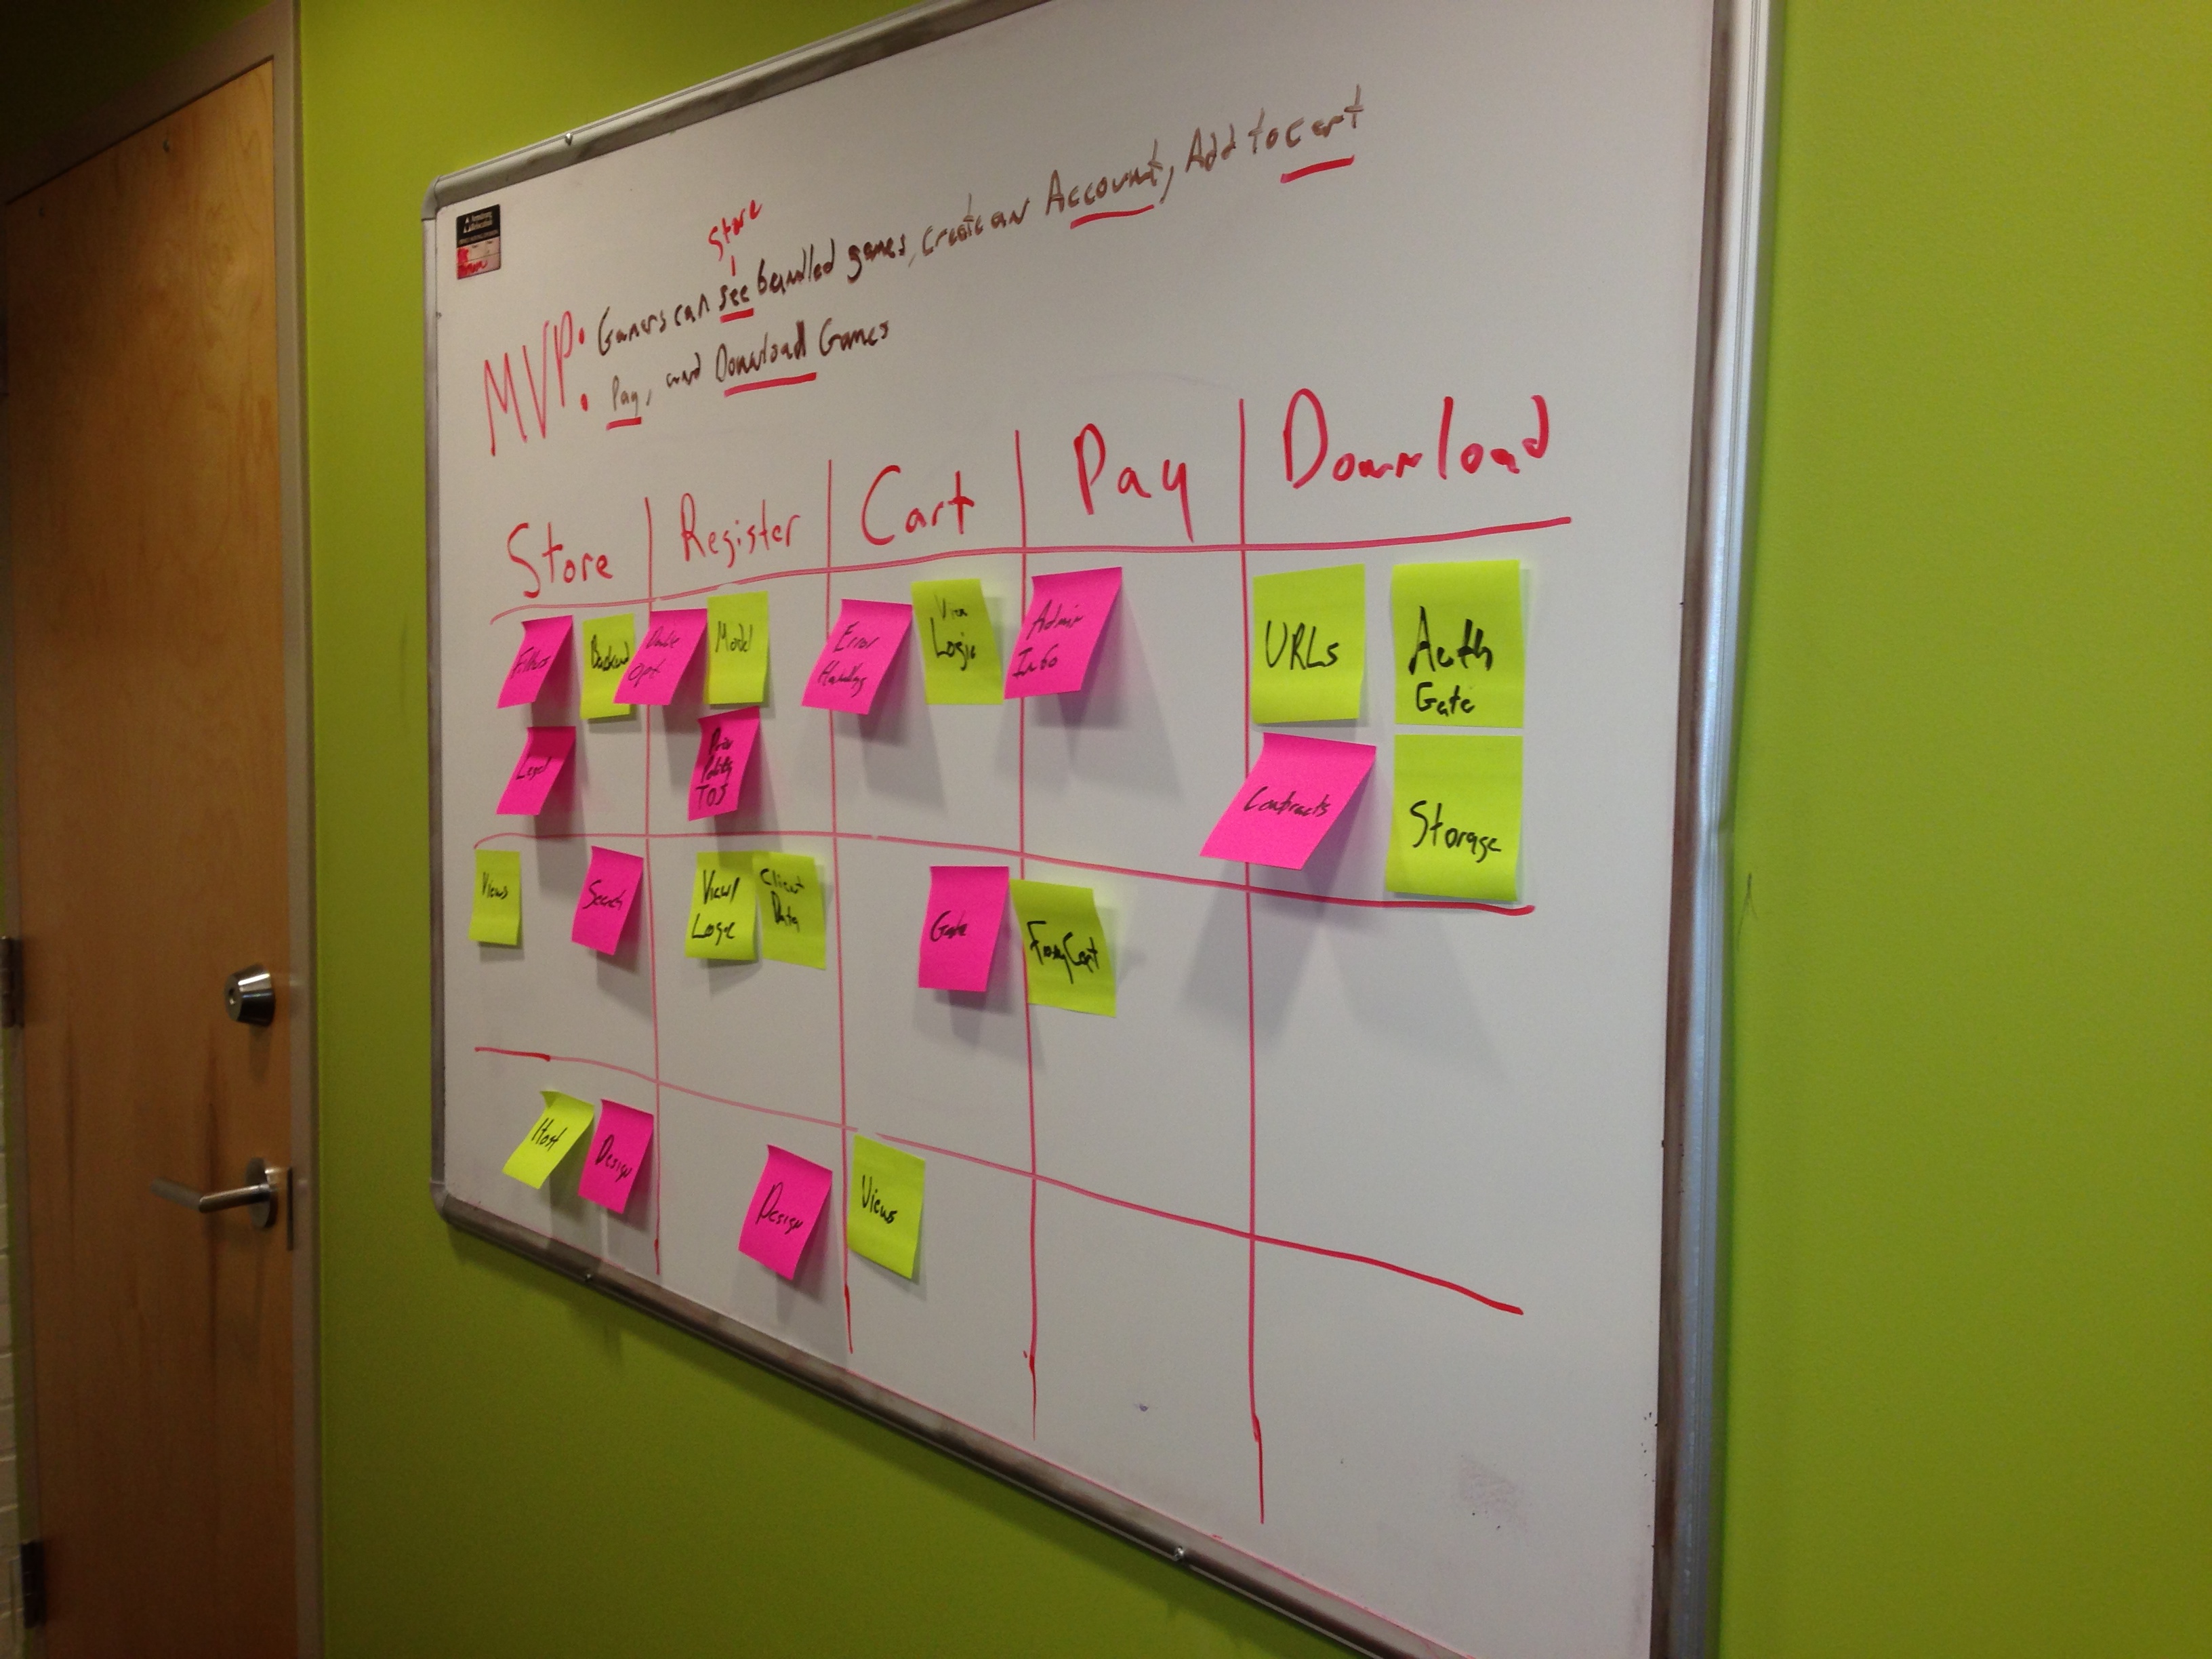 Store
MVP: Gamers can see bundled games, create an Account, Add to cart
Pay, and Download Games
Store Register Cart Pay Download
Filters
Backend
Double
Opt
Model
Error
Handling
View
Logic
Admin
Info
URLs
Auth
Gate
Legal
Priv
Policy
TOS
Contracts
Storage
Views
Search
View/
Logic
Client
Data
Gate
FoxyCart
Host
Design
Design
Views